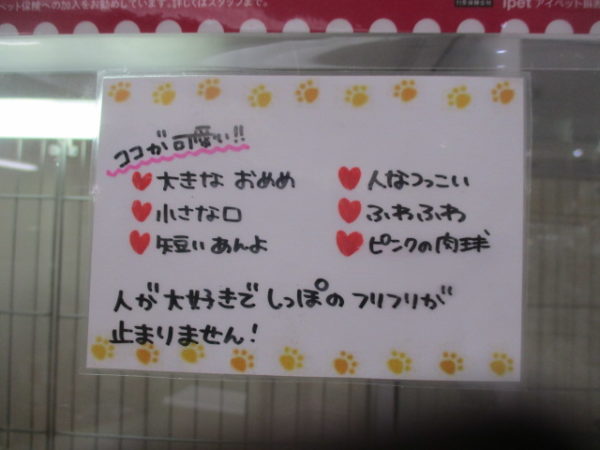 ペット保険への加入をお勧めしています。詳しくはスタッフまで。
ipet アイペット損
ココが可愛い!!
大きな おめめ
人なつっこい
小さな口
ふわふわ
短いあんよ
ピンクの肉球
人が大好きで しっぽの フリフリが
止まりません!